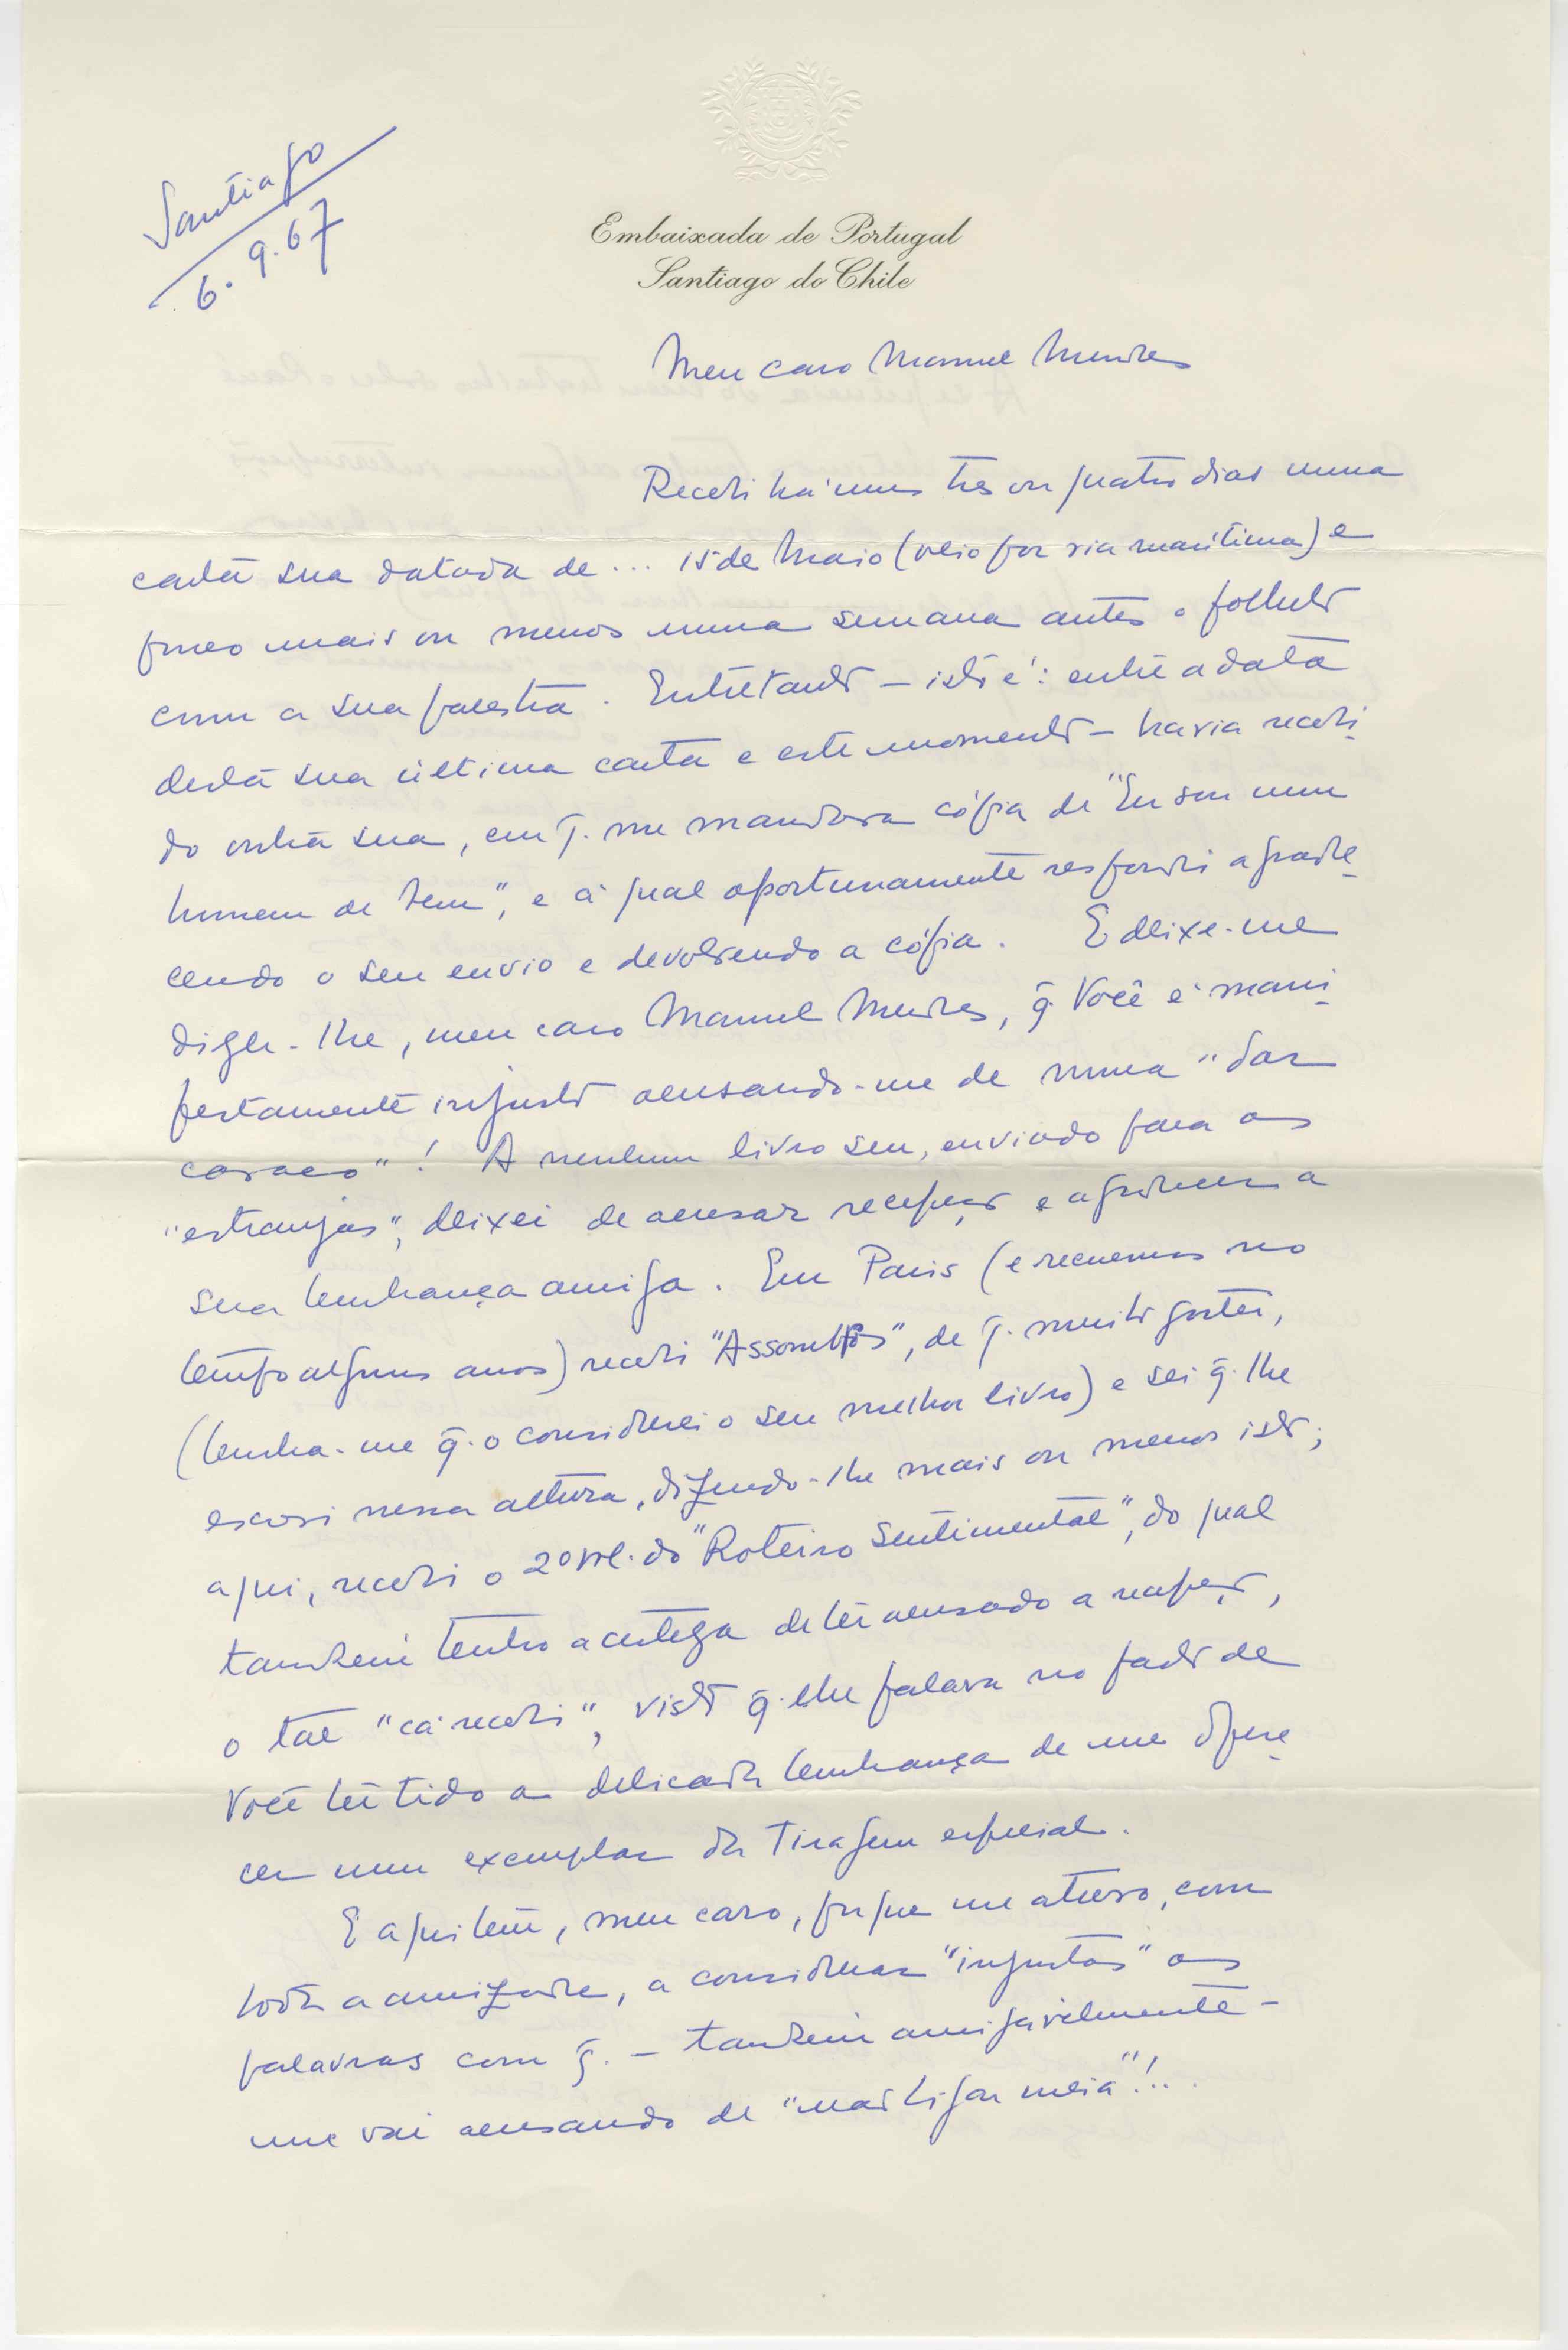 Santiago
6.9.67
Embaixada de Portugal
Santiago do Chile
Meu caro Manuel Mendes
Recebi há uns tres ou quatro dias uma
carta sua datada de ... 15 de Maio (veio por via marítima) e
pouco mais ou menos uma semana antes o folheto
com a sua palestra. Entretanto – isto é: entre a data
desta sua última carta e este momento – havia recebi-
do outra sua, em q. me mandava cópia de "Eu sou um
homem de bem", e à qual oportunamente respondi agrade-
cendo o seu envio e devolvendo a cópia. E deixe-me
dizer-lhe, meu caro Manuel Mendes, q. Você é mani-
festamente injusto acusando-me de nunca "dar
cavaco"! A nenhum livro seu, enviado para as
"estranjas", deixei de acusar recepção e agradecer a
sua lembrança amiga. Em Paris (e recuemos no
tempo alguns anos) recebi "Assombros", de q. muito gostei,
(lembra-me q. o considerei o seu melhor livro) e sei q. lhe
escrevi nessa altura, dizendo-lhe mais ou menos isto;
aqui, recebi o 2º vol. do "Roteiro Sentimental", do qual
também tenho a certeza de ter acusado a recepção,
o tal "cá recebi", visto q. lhe falava no facto de
Você ter tido a delicada lembrança de me ofere-
cer um exemplar da tiragem especial.
E aqui tem, meu caro, porque me atrevo, com
toda a amizade, a considerar "injustas" as
palavras com q. – também amigavelmente –
me vai acusando de "não ligar meia"!...